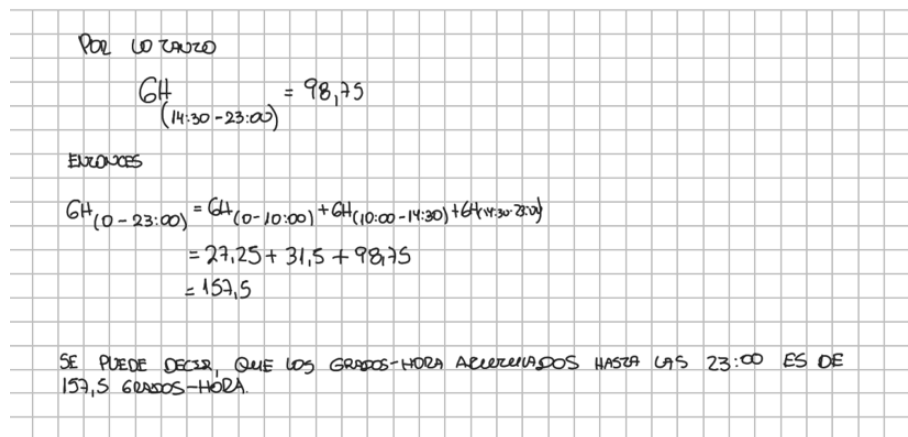 POR LO TANTO
GH(14:30-23:00) = 98,75
ENTONCES
GH(0-23:00) = GH(0-10:00) + GH(10:00-14:30) + GH(14:30-23:00)
= 27,25 + 31,5 + 98,75
= 157,5
SE PUEDE DECIR, QUE LOS GRADOS-HORA ACUMULADOS HASTA LAS 23:00 ES DE
157,5 GRADOS-HORA.